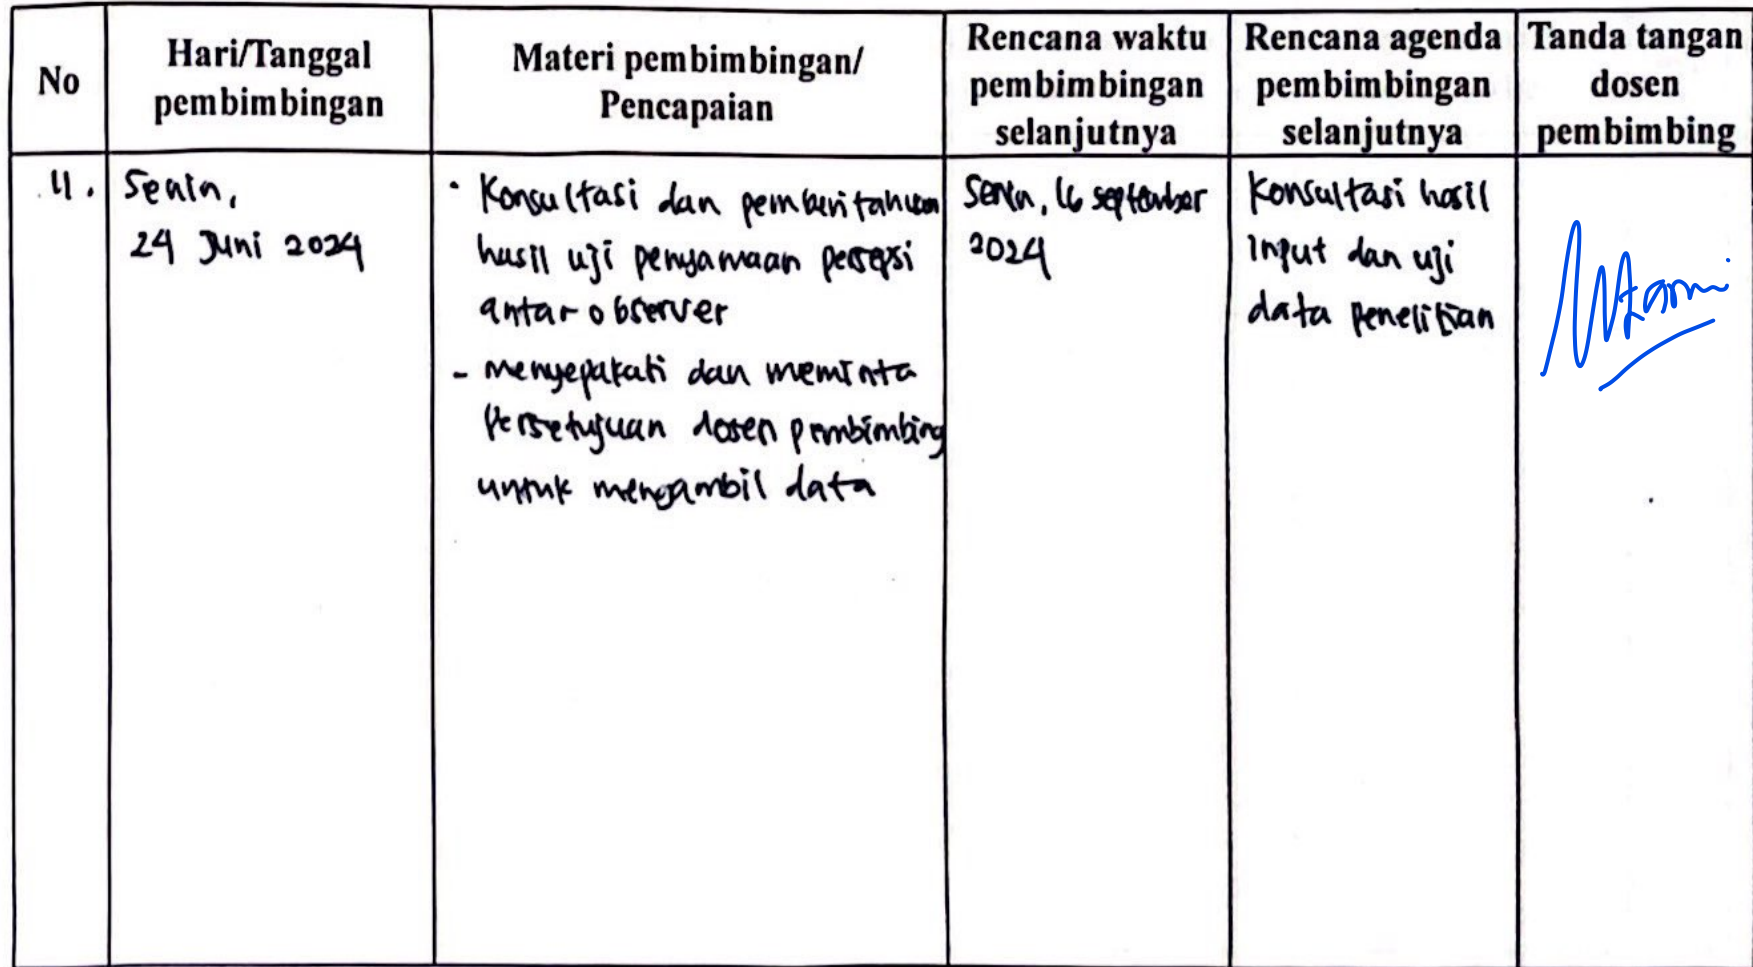 No
Hari/Tanggal
pembimbingan
Materi pembimbingan/
Pencapaian
Rencana waktu
pembimbingan
selanjutnya
Rencana agenda
pembimbingan
selanjutnya
Tanda tangan
dosen
pembimbing
11.
Senin,
24 Juni 2024
· Konsultasi dan pemberitahuan
hasil uji penyamaan persepsi
antar observer
- menyepakati dan meminta
persetujuan dosen pembimbing
untuk mengambil data
Senin, 16 september
2024
Konsultasi hasil
input dan uji
data penelitian